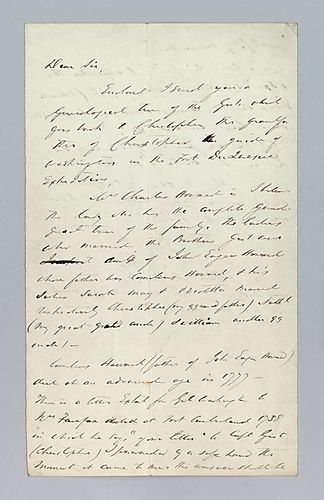 Dear Sir,
Enclosed I send you a
Genealogical tree of the Gists which
goes back to Christopher the grandfa
ther of Christopher the guide of
Washington in the Fort DuQuesne
Expedition,
Mrs Charles Howard is I believe
the lady who has the complete Genealo-
tree of the family. The ladies
who married the Brothers Gist were
aunts of John Eager Howard
whose father was Cornelius Howard, & his
Sisters Sarah, & Violetta married
respectively Christopher (my grandfather) Nathl
(My great uncle) & William another
uncle) —
Cornelius Howard (father of John Eager Howard)
died at an advanced age in 1777 —
There is a letter Extant for Col. Washington to
Mrs Fairfax dated at Fort Cumberland 1758
in which he says, "your letter to Capt Gist
(Christopher) I forwarded by a safe hand the
moment it came to me. His answer shall be